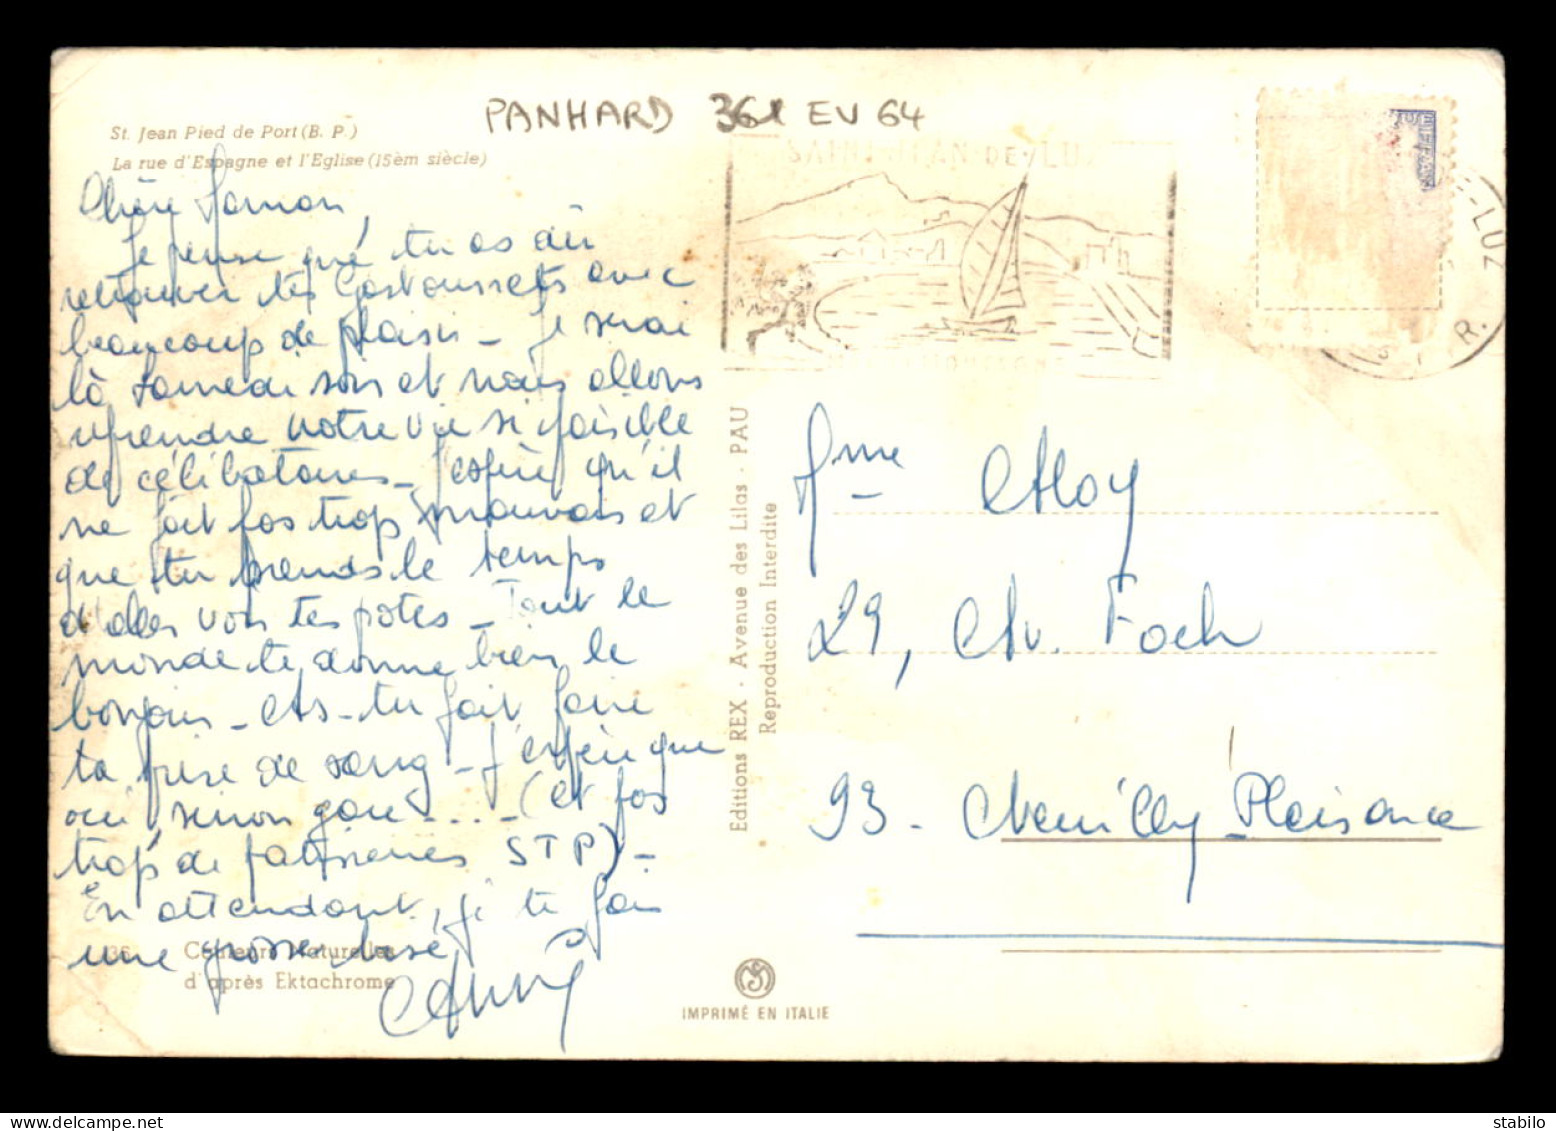 PANHARD 361 EV 64
St. Jean Pied de Port (B. P.)
La rue d'Espagne et l'Eglise (15èm siècle)
Chère Maman
Je pense que tu as dû
retrouver tes avec
beaucoup de plaisir - Je serai
là samedi soir et nous allons
reprendre notre vie si paisible
de célibataires - J'espère qu'il
ne fait pas trop mauvais et
que tu prends le temps
d'aller voir tes potes - Tout le
monde te donne bien le
bonjour - As-tu fait faire
ta prise de sang - J'espère que
oui, sinon gare .... (et pas
trop de patisseries STP) -
En attendant, je te fais
une grosse bisé
Anny
36 Couleurs Naturelles
d'après Ektachrome
Editions REX · Avenue des Lilas · PAU
Reproduction Interdite
IMPRIMÉ EN ITALIE
SAINT-JEAN-DE-LUZ
-LUZ
Mme Aloy
29, Av. Foch
93 - Neuilly-Plaisance
stabilo